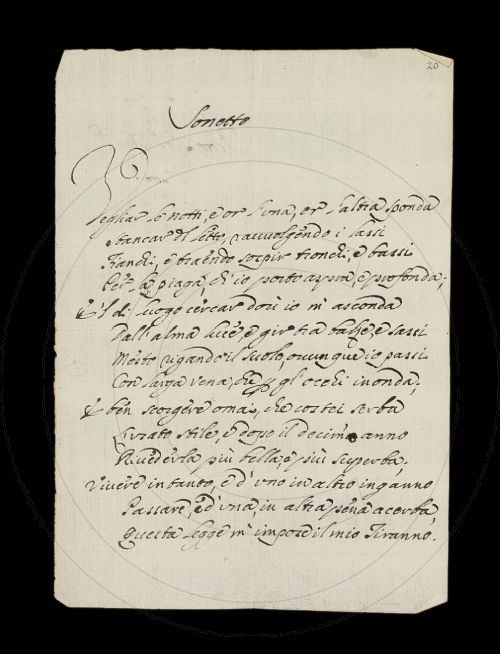 20
Sonetto
Vegliar le notti, e or l'una, or l'altra sponda
Stancar del letto, ravvolgendo i lassi
Fianchi, e traendo sospir tronchi, e bassi
Per la piaga, ch'io porto aspra, e profonda;
E'l dì luogo cercar dov'io m'asconda
Dall'alma luce, e gir tra balze, e sassi
Mesto rigando il suolo, ovunque io passi
Con larga vena, che per gl'occhi inonda;
E ben scorgere omai, che costei serba
L'usato stile, e dopo il decimo anno
Rivederla più bella, e più superba.
Vivere intanto, e d'uno in altro inganno
Passare, e d'una in altra pena acerba
Questa legge m'impose il mio Tiranno.